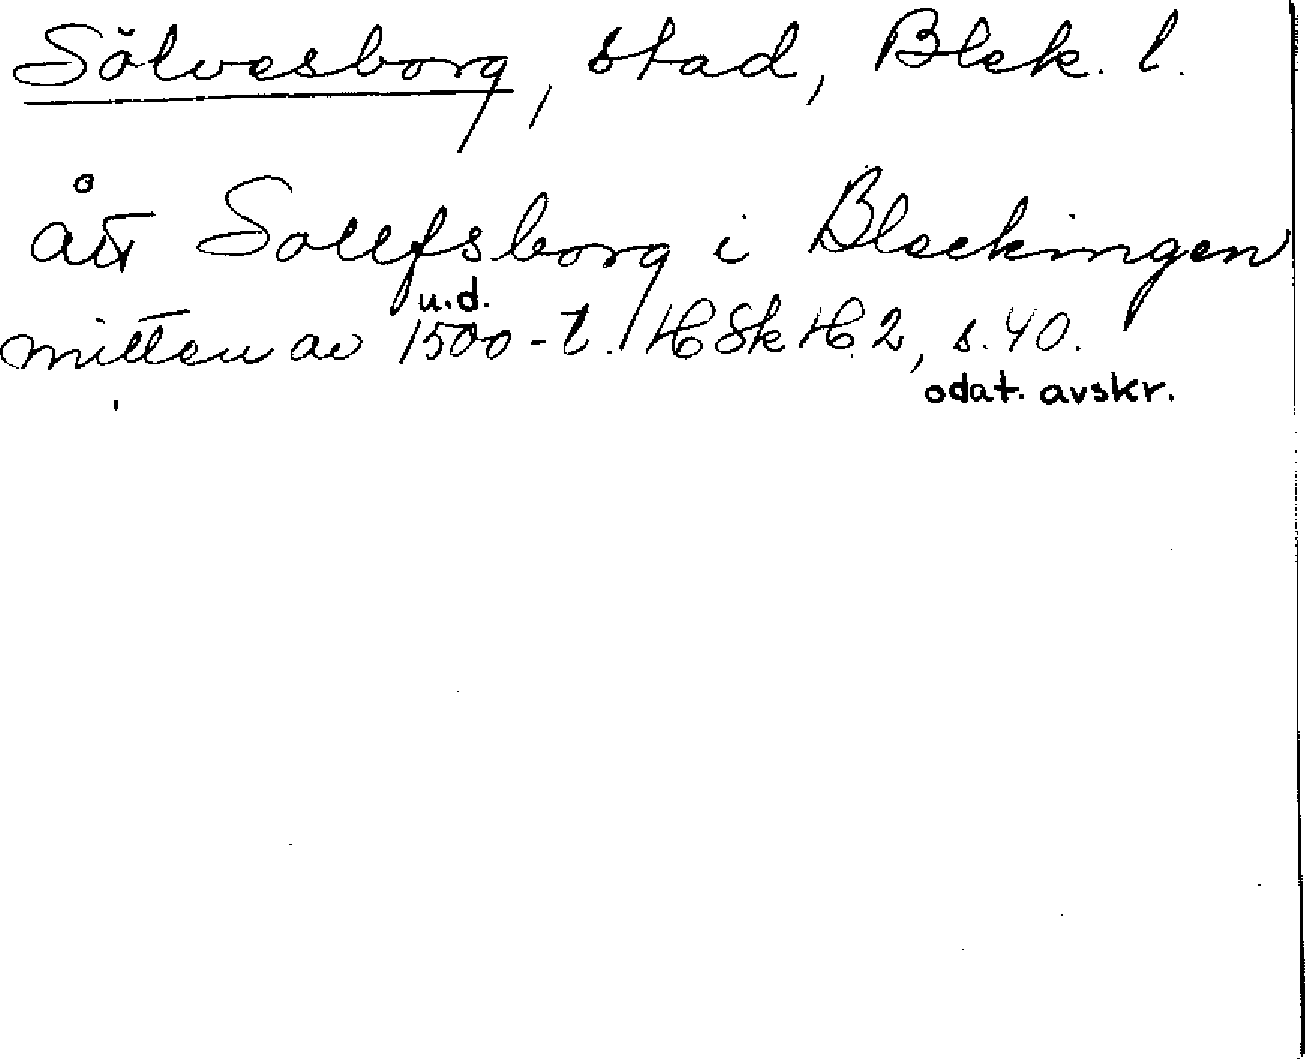 Sölvesborg, stad, Blek. l.
ått Sollfsborg i Bleckingen
u.d.
mitten av 1500-t. HSkH 2, s. 40.
odat. avskr.